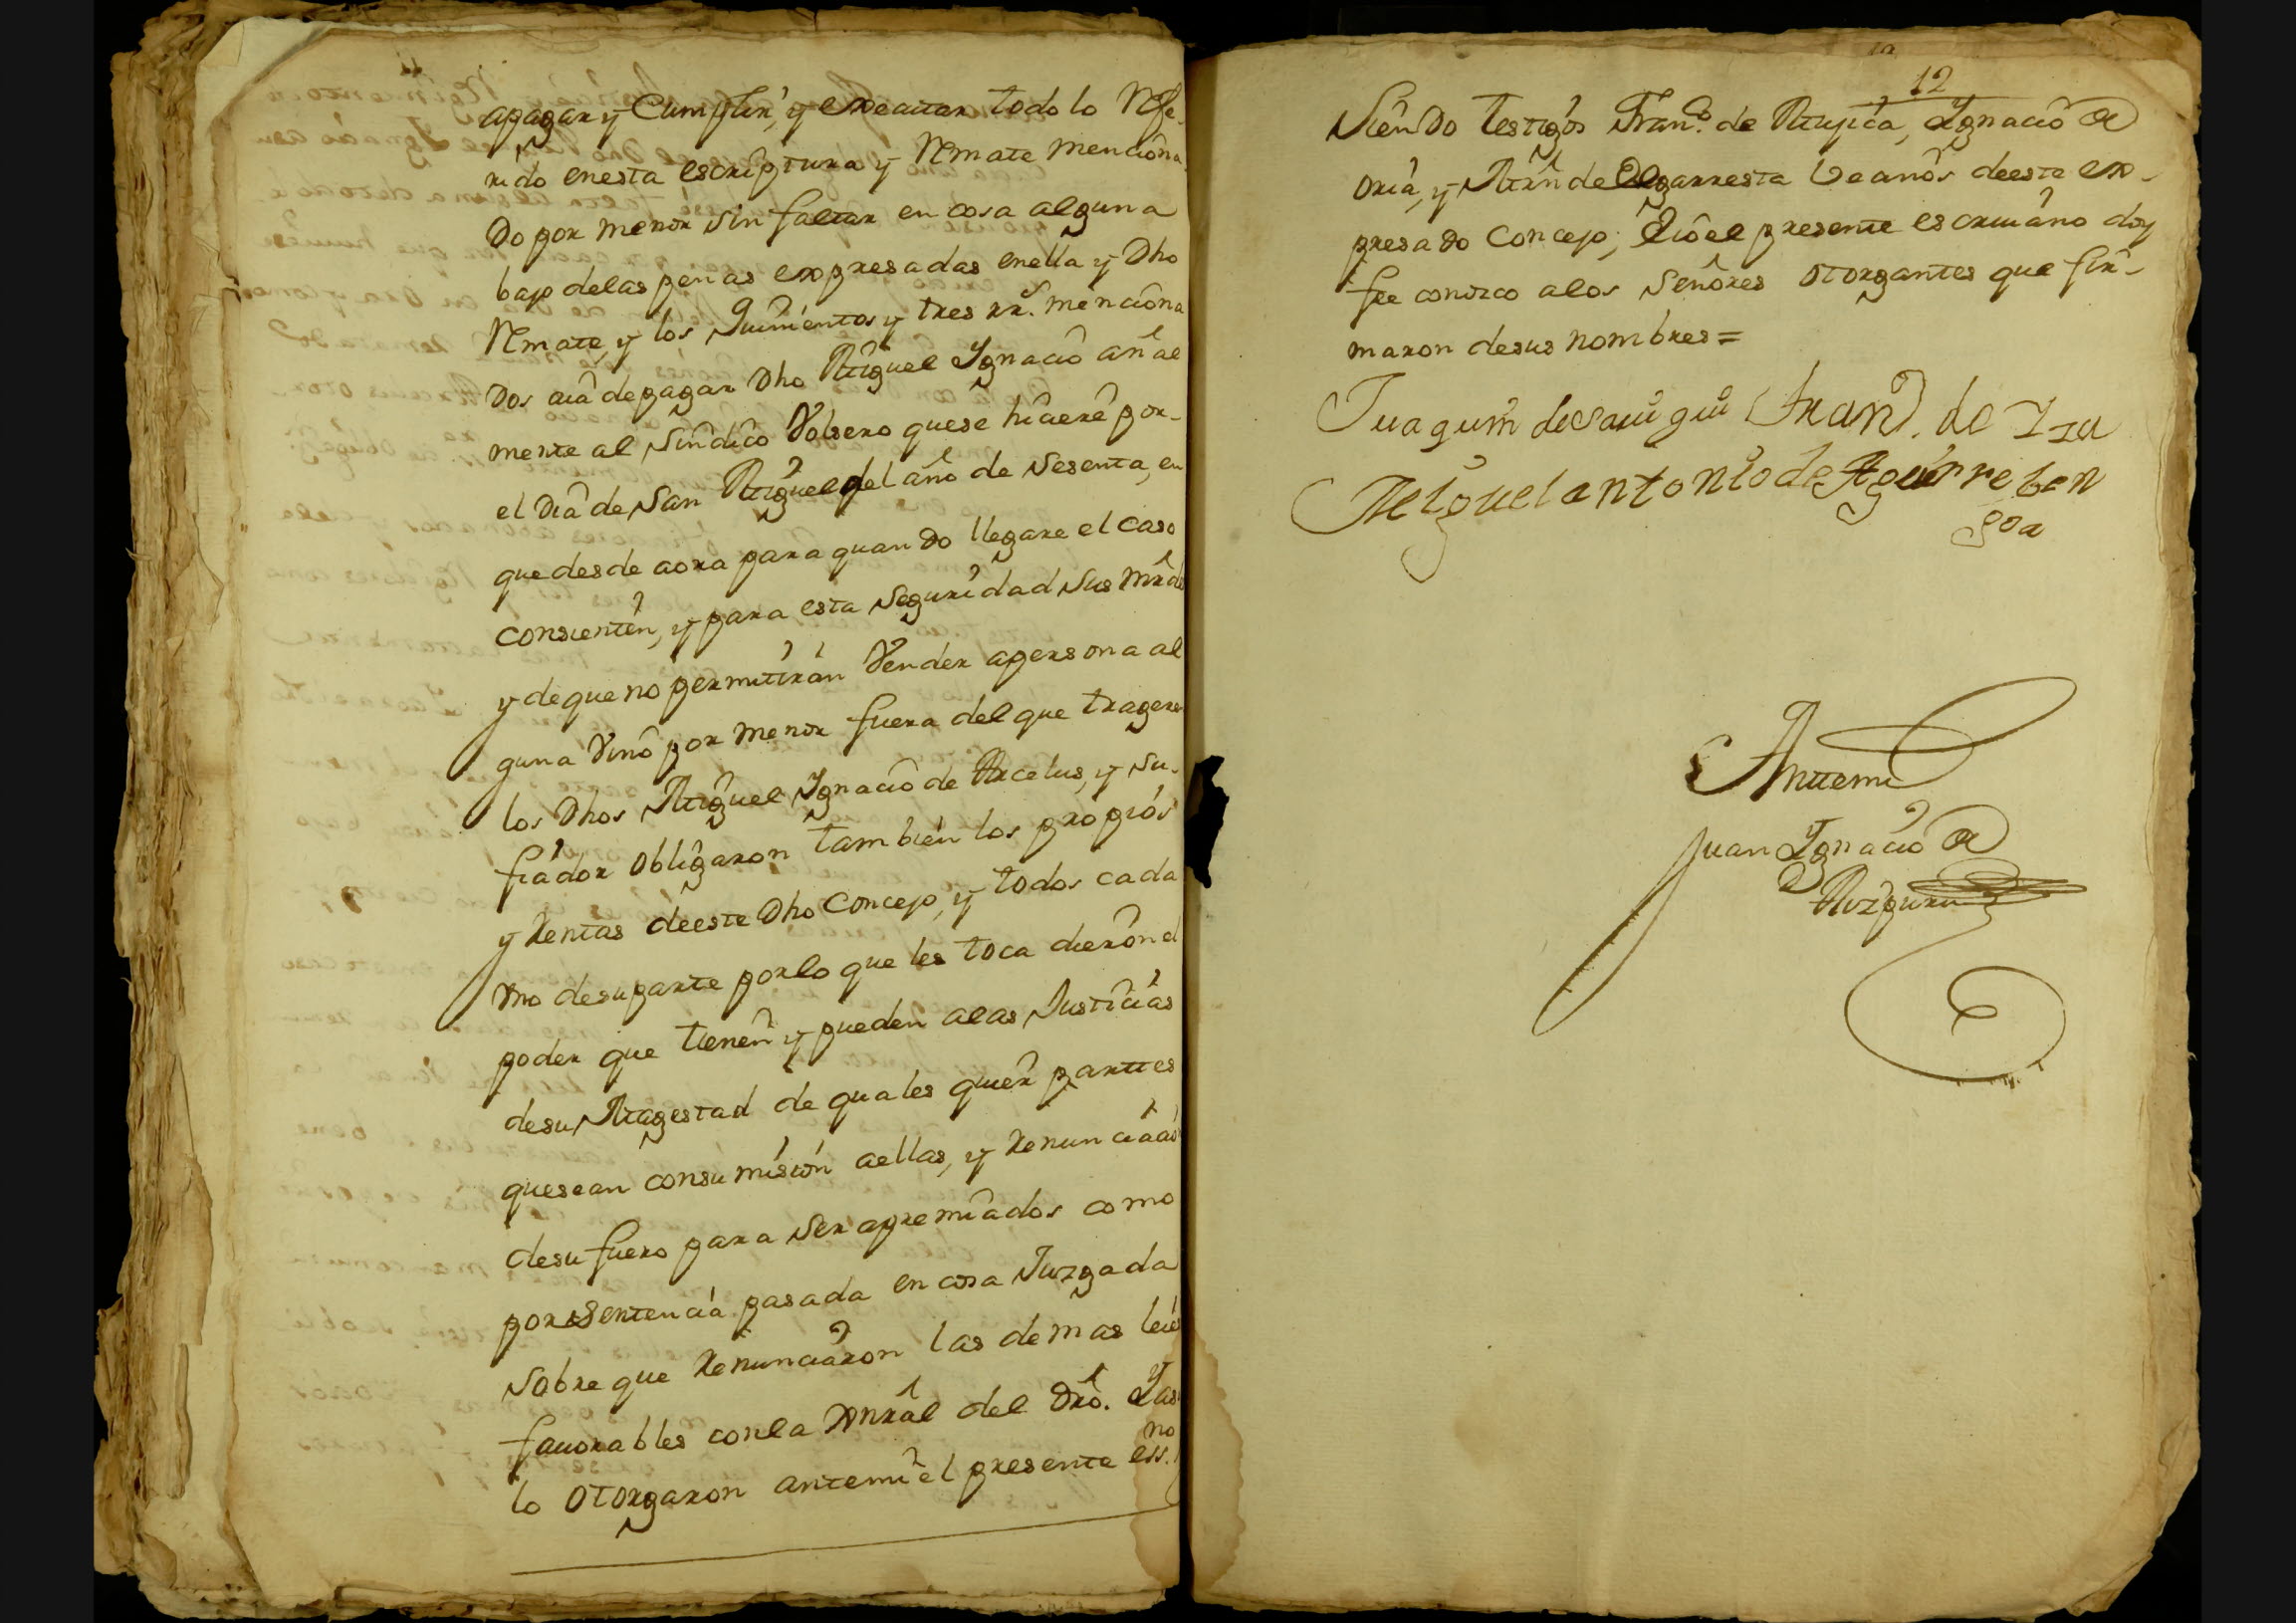 apagar y Cumplir, y executar todo lo Refe-
rido enesta escriptura y Remate menciona
do por menor sin faltar en cosa alguna
bajo delas penas expresadas enella y Dho
Remate, y los Quinientos y tres rr.s menciona
dos a de pagar Dho Miguel Ignacio
mente al Sindico Volsero quese hiciere por-
el Dia de San Miguel del año de sesenta, en
que desde aora para quando llegare el caso
consienten, y para esta seguridad Sus
y de que no permitiran Vender apersona al
guna Vino por menor fuera del que trageren
los Dhos Miguel Ignacio de Arcelus, y su-
fiador obligaron tambien los propios
y Rentas deeste Dho Concejo, y todos cada
vno desuparte porlo que les toca dieron el
poder que tienen y pueden alas Justicias
desu Magestad de quales quier parttes
quesean consumision aellas, y Renunciacion
desu fuero para ser apremiados como
por sentencia pasada en cosa Juzgada
sobre que Renunciaron las demas leies
fauorables conla Gnral del dro. Y asi
lo otorgaron antemi el presente ess.no
12
Siendo testigos Fran.co de Mujica, Ignacio de
oria, y Mrn de Olgarresta Vecinos deeste ex-
presado Concejo; E Yo el presente escriuano doy
fee conozco alos Señores otorgantes que fir-
maron desus nombres=
Juaquin de Sauigui Fran.co de Iza
Miguel antonio de Aguirre ben
goa
Anttemi
Juan Ignacio de